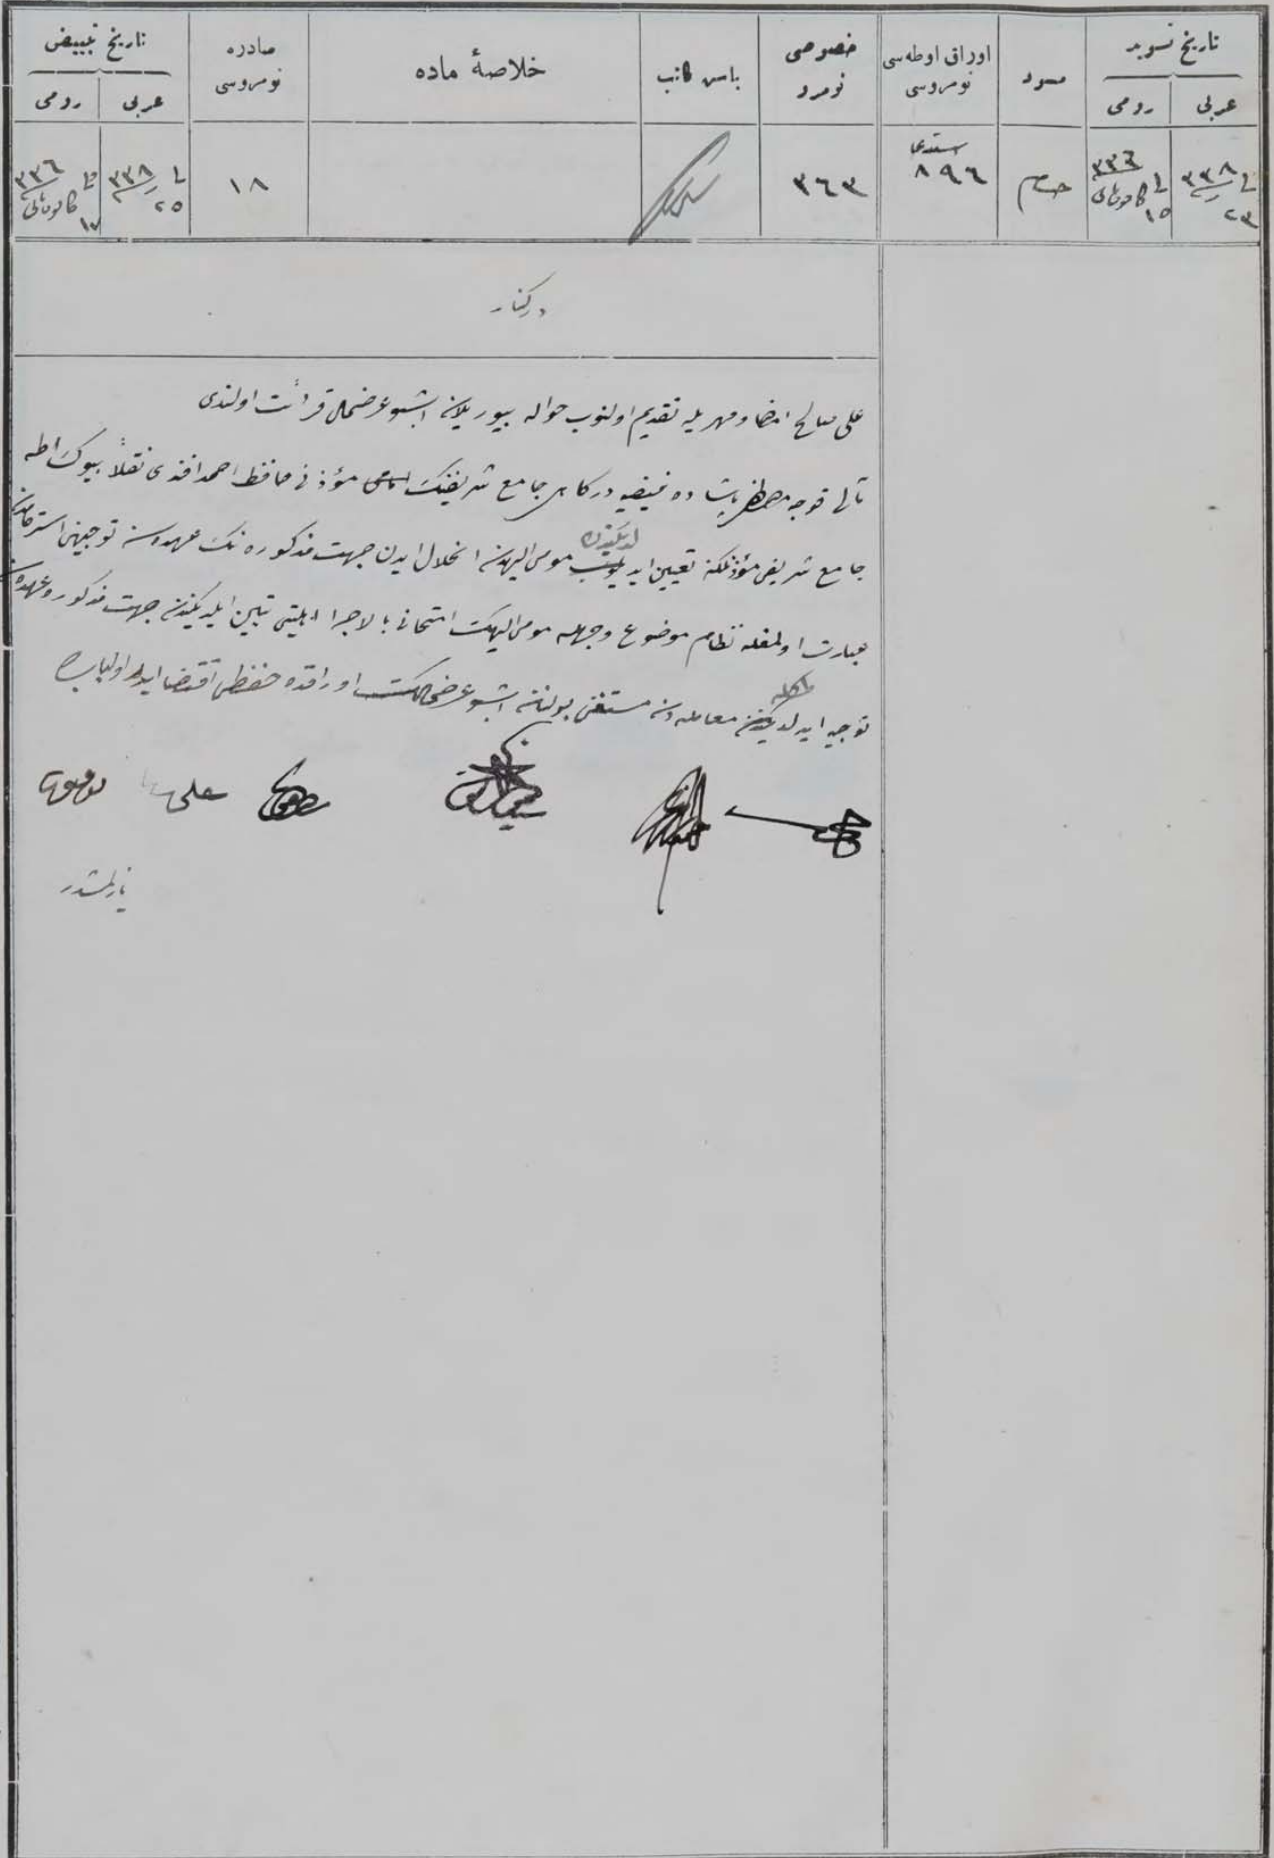 تاریخ تسوید
عربی رومی
مسود
اوراق اوطه‌سی نومروسی
خصوصی نومرو
باش كاتب
خلاصهٔ ماده
صادره نومروسی
تاریخ تبییض
عربی رومی
٣٣٨ ٢٣
٣٣٦ ١٥
استدعا ٨٩٦
٣٦٣
١٨
٣٣٨ ٢٥
٣٣٦ كانون ثانی ١٧
دركنار
علی صالح امضا و مهریله تقدیم اولنوب حواله بیوریلان اشبو عرضحال قرائت اولندی
قوجه مصطفی پاشاده كائن جامع شریفنك مؤذنی حافظ احمد افندی نقلاً بیوك اطه
جامع شریفی مؤذنلكنه تعیین ایدلدیكندن مومی الیهدن انحلال ایدن جهت مذكوره‌نك عهده‌سنه توجیهی استرحامندن
عبارت اولمغله نظام موضوع وجهله مومی الیهك امتحانی بالاجرا اهلیتی تبین ایلدیكندن جهت مذكوره عهده‌سنه
توجیه ایدلدیكنه معامله‌دن مستغنی بولنان اشبو عرضحالك اوراقده حفظی اقتضا ایدر اولبابده
علی
یازلمشدر